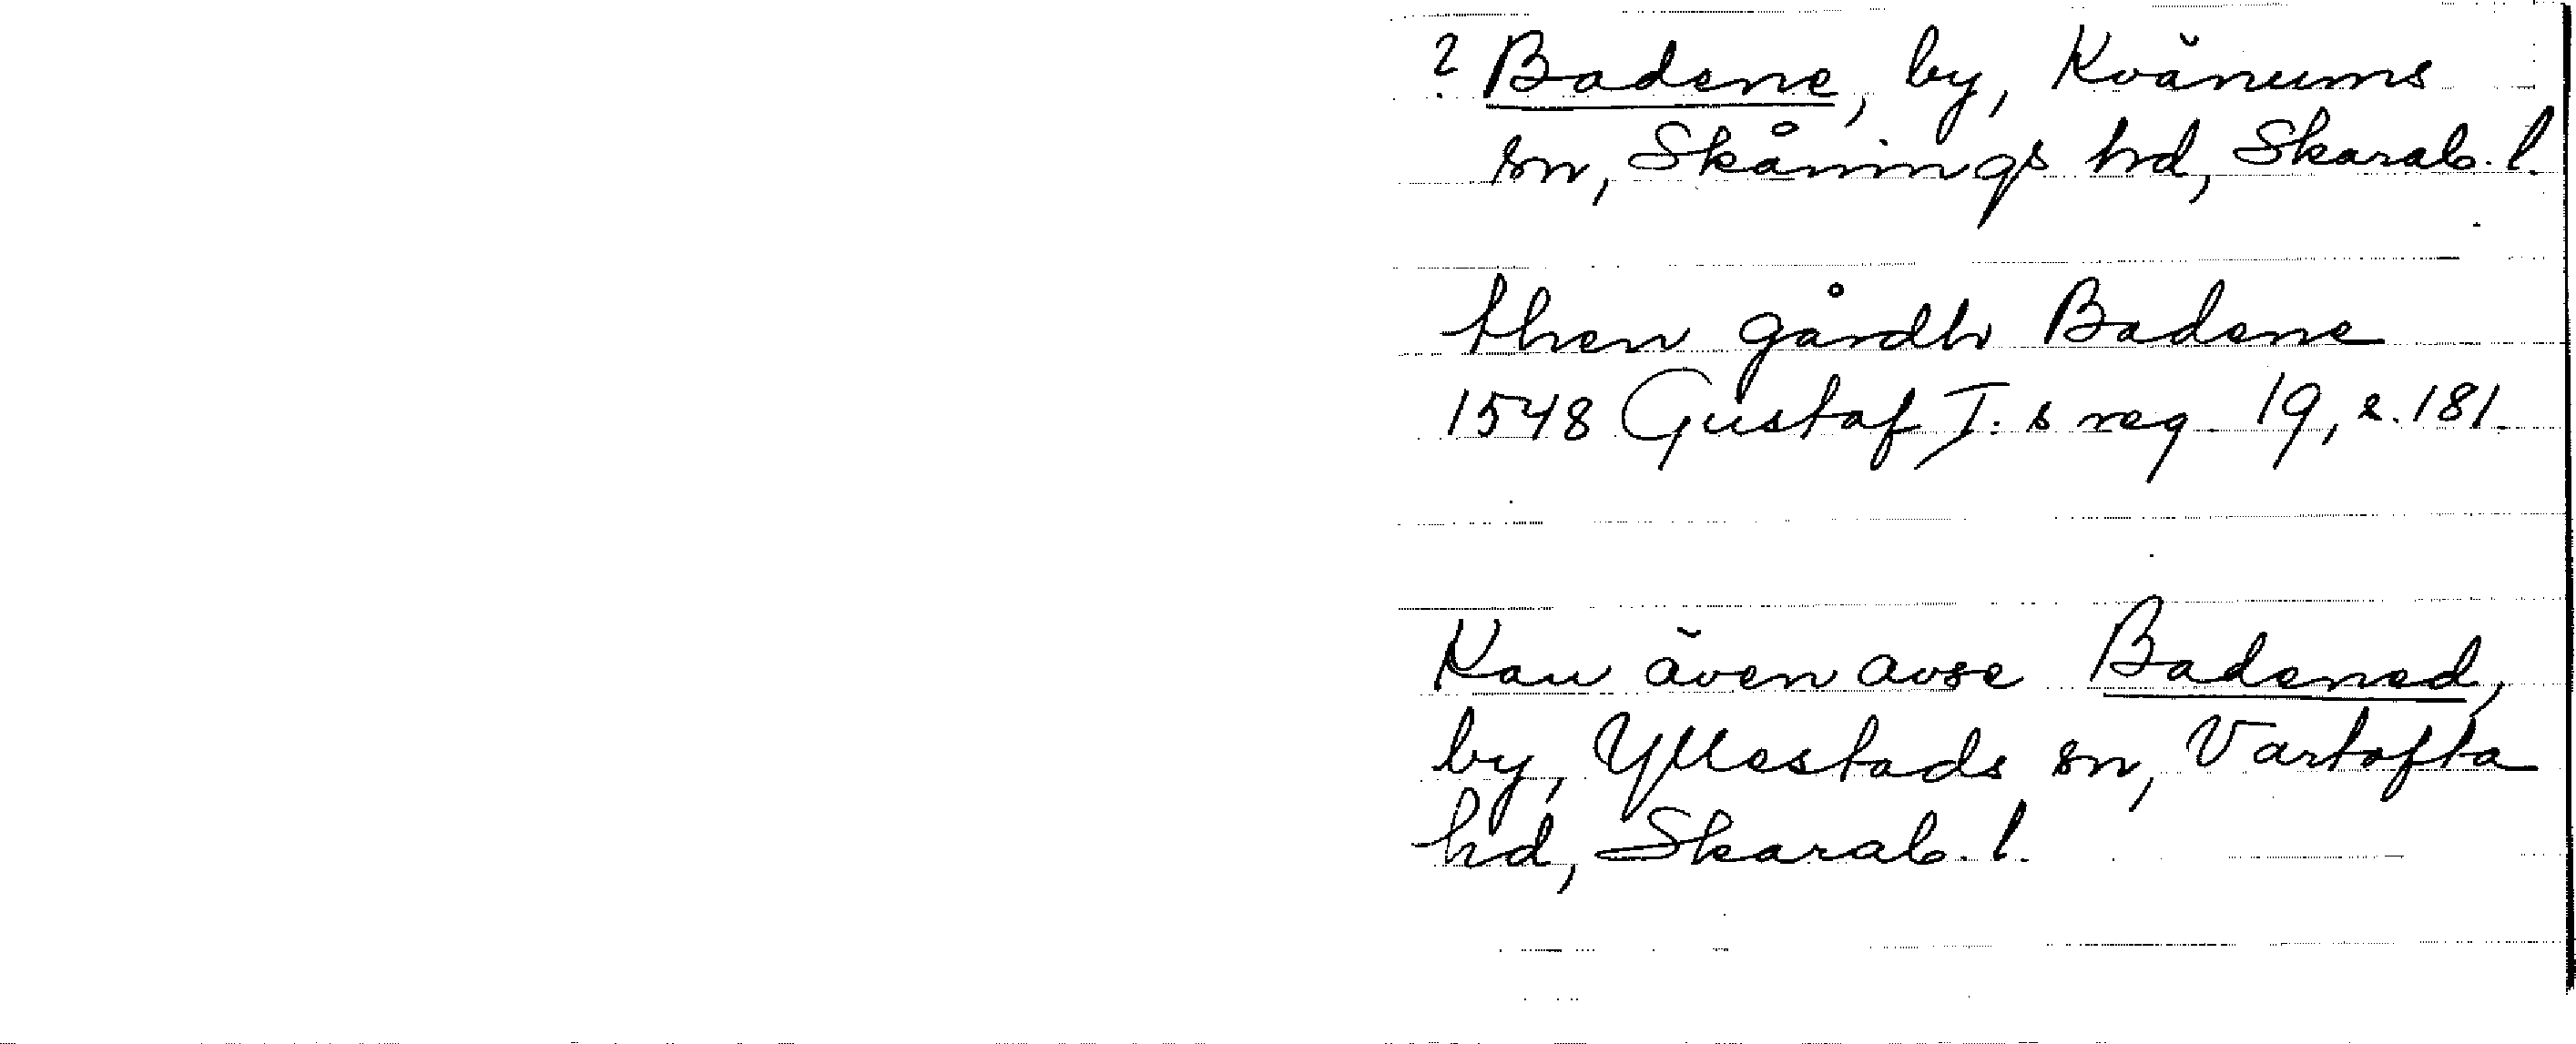 ? Badene, by, Kvänums
sn, Skånings hd, Skarab. l.
then gårdh Badene
1548 Gustaf I:s reg. 19, s. 181.
Kan även avse Badened,
by, Yllestads sn, Vartofta
hd, Skarab. l.